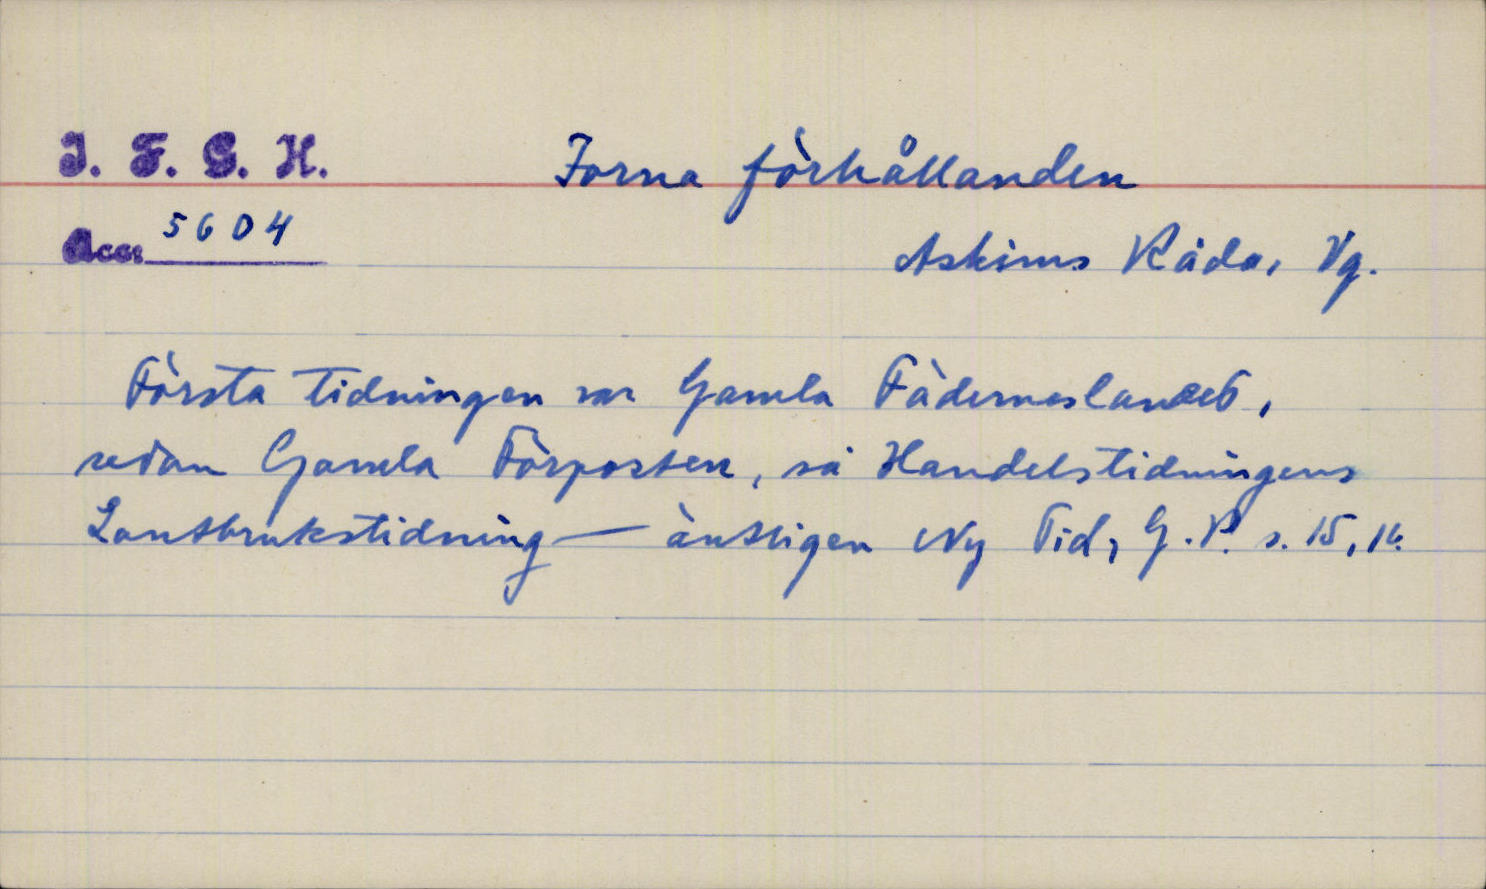 I. F. G. H.
Forna förhållanden
Acc: 5604
Askims Råda, Vg.
Första tidningen var Gamla Fäderneslandet,
sedan Gamla Förposten, så Handelstidningens
Lantbrukstidning — äntligen Ny Tid, G.P. s. 15, 16.